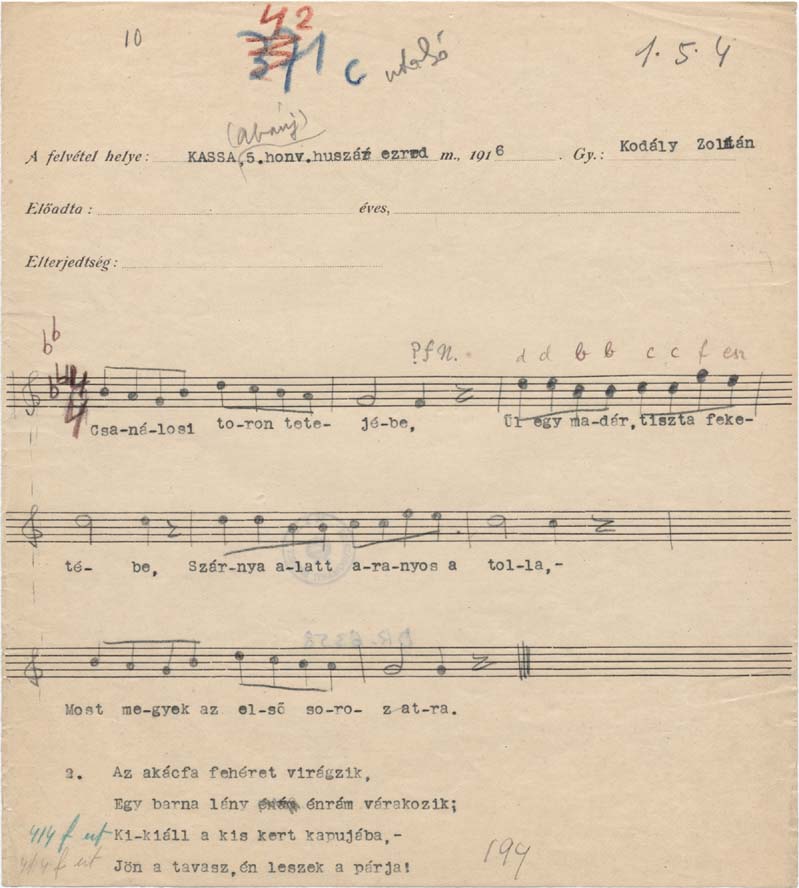 10
42
371 c utolsó
1. 5. 4
(abauj)
A felvétel helye: KASSA, 5.honv.huszár ezred m., 1916 . Gy.: Kodály Zoltán
Előadta: éves,
Elterjedtség:
d d b b c c f esz
Csa-ná-losi to-ron tete- jé-be, Ül egy ma-dár, tiszta feke-
té- be, Szár-nya a-latt a-ra-nyos a tol-la,-
BR.6358
Most me-gyek az el-ső so-ro- zat-ra.
2. Az akácfa fehéret virágzik,
Egy barna lány énrám várakozik;
414 f ut Ki-kiáll a kis kert kapujába,-
414 f ut Jön a tavasz, én leszek a párja!
194